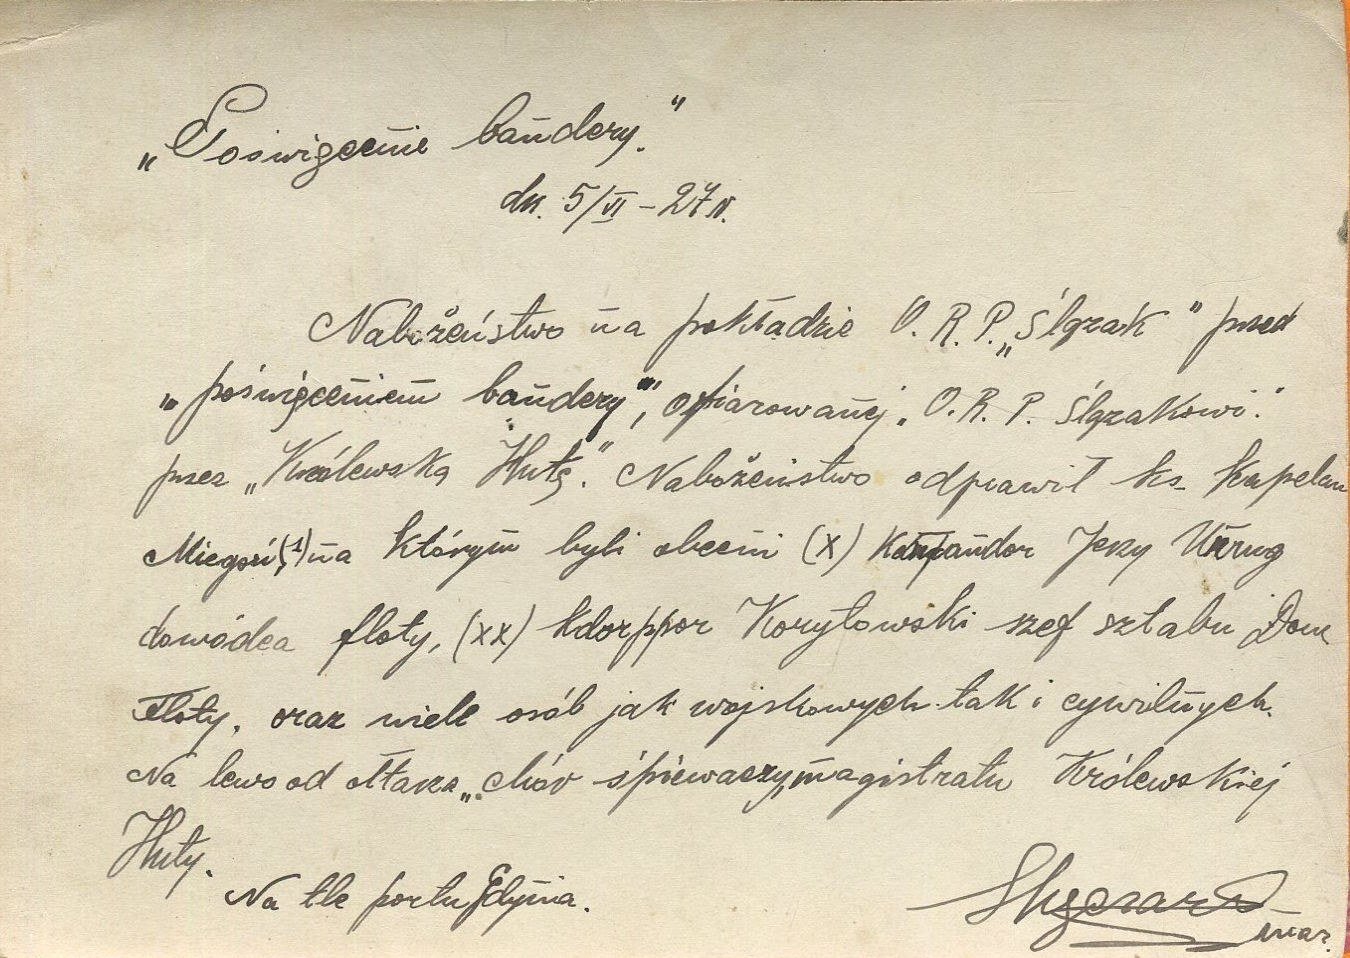 „Poświęcenie bandery."
dn. 5/VI – 27 r.
Nabożeństwo na pokładzie O.R.P. „Ślązak" przed
„poświęceniem bandery", ofiarowanej „O.R.P. Ślązakowi."
przez „Królewską Hutę". Nabożeństwo odprawił ks. kapelan
Miegoń,(1) na którym byli obecni (x) Komandor Jerzy Unrug
dowódca floty, (xx) kdorppor Korytowski szef sztabu Dow
Floty, oraz wiele osób jak wojskowych tak i cywilnych.
Na lewo od ołtarza „chór śpiewaczy" magistratu Królewskiej
Huty.
Na tle portu Gdynia.
mar.